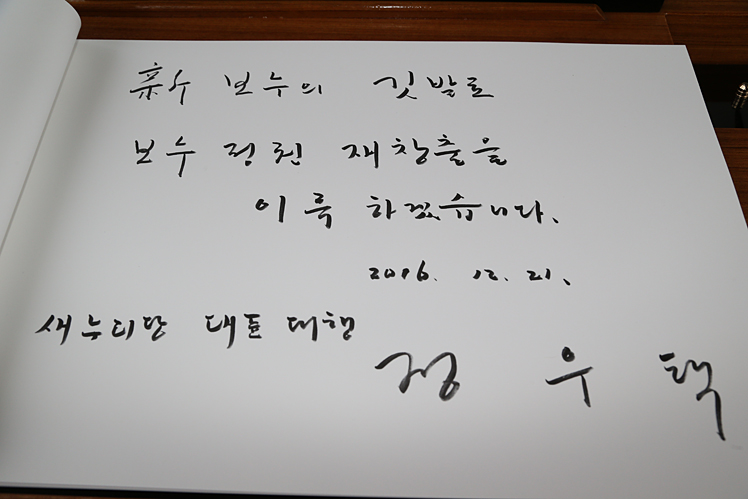 新 보수의 깃발로
보수 정권 재창출을
이룩 하겠습니다.
2016. 12. 21.
새누리당 대표 대행
정 우 택